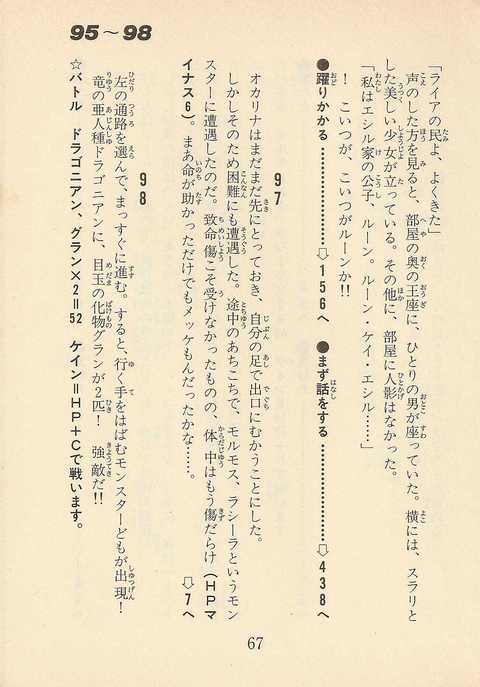 95～98
「ライアの民よ、よくきた」
声のした方を見ると、部屋の奥の王座に、ひとりの男が座っていた。横には、スラリと
した美しい少女が立っている。その他に、部屋に人影はなかった。
「私はエシル家の公子、ルーン。ルーン・ケイ・エシル……」
！　こいつが、こいつがルーンか!!
●躍りかかる…………⇨156へ　●まず話をする…………⇨438へ
97
オカリナはまだまだ先にとっておき、自分の足で出口にむかうことにした。
しかしそのため困難にも遭遇した。途中のあちこちで、モルモス、ラシーラというモン
スターに遭遇したのだ。致命傷こそ受けなかったものの、体中はもう傷だらけ（HPマ
イナス6）。まあ命が助かっただけでもメッケもんだったかな……。
⇨7へ
98
左の通路を選んで、まっすぐに進む。すると、行く手をはばむモンスターどもが出現！
竜の亜人種ドラゴニアンに、目玉の化物グランが2匹！　強敵だ!!
☆バトル　ドラゴニアン、グラン×2＝52　ケイン＝HP＋Cで戦います。
67